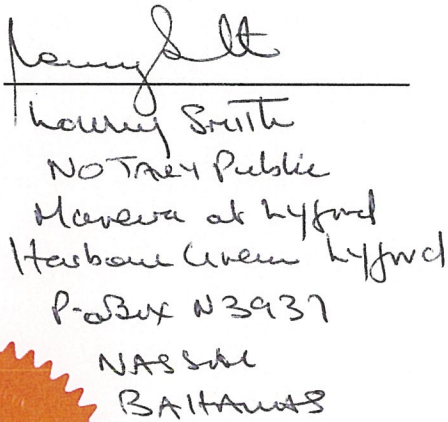 Lanny Smith
NOTARY Public
Mareva at Lyford
Harbour Green Lyford
P.O Box N3937
NASSAU
BAHAMAS